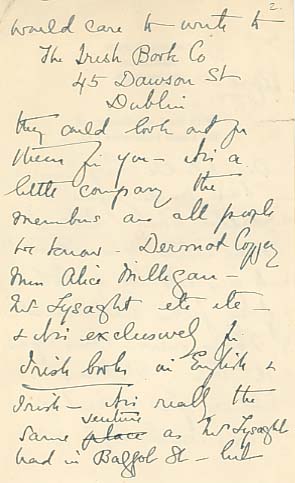 2.
would care to write to
The Irish Book Co
45 Dawson St
Dublin
they could look out for
them for you - it is a
little company the
members are all people
we know - Dermot Coffey
Miss Alice Milligan -
Mr Lysaght etc etc -
& it is exclusively for
Irish books in English &
Irish - it is really the
venture
same place as Mr Lysaght
had in Baggot St - but